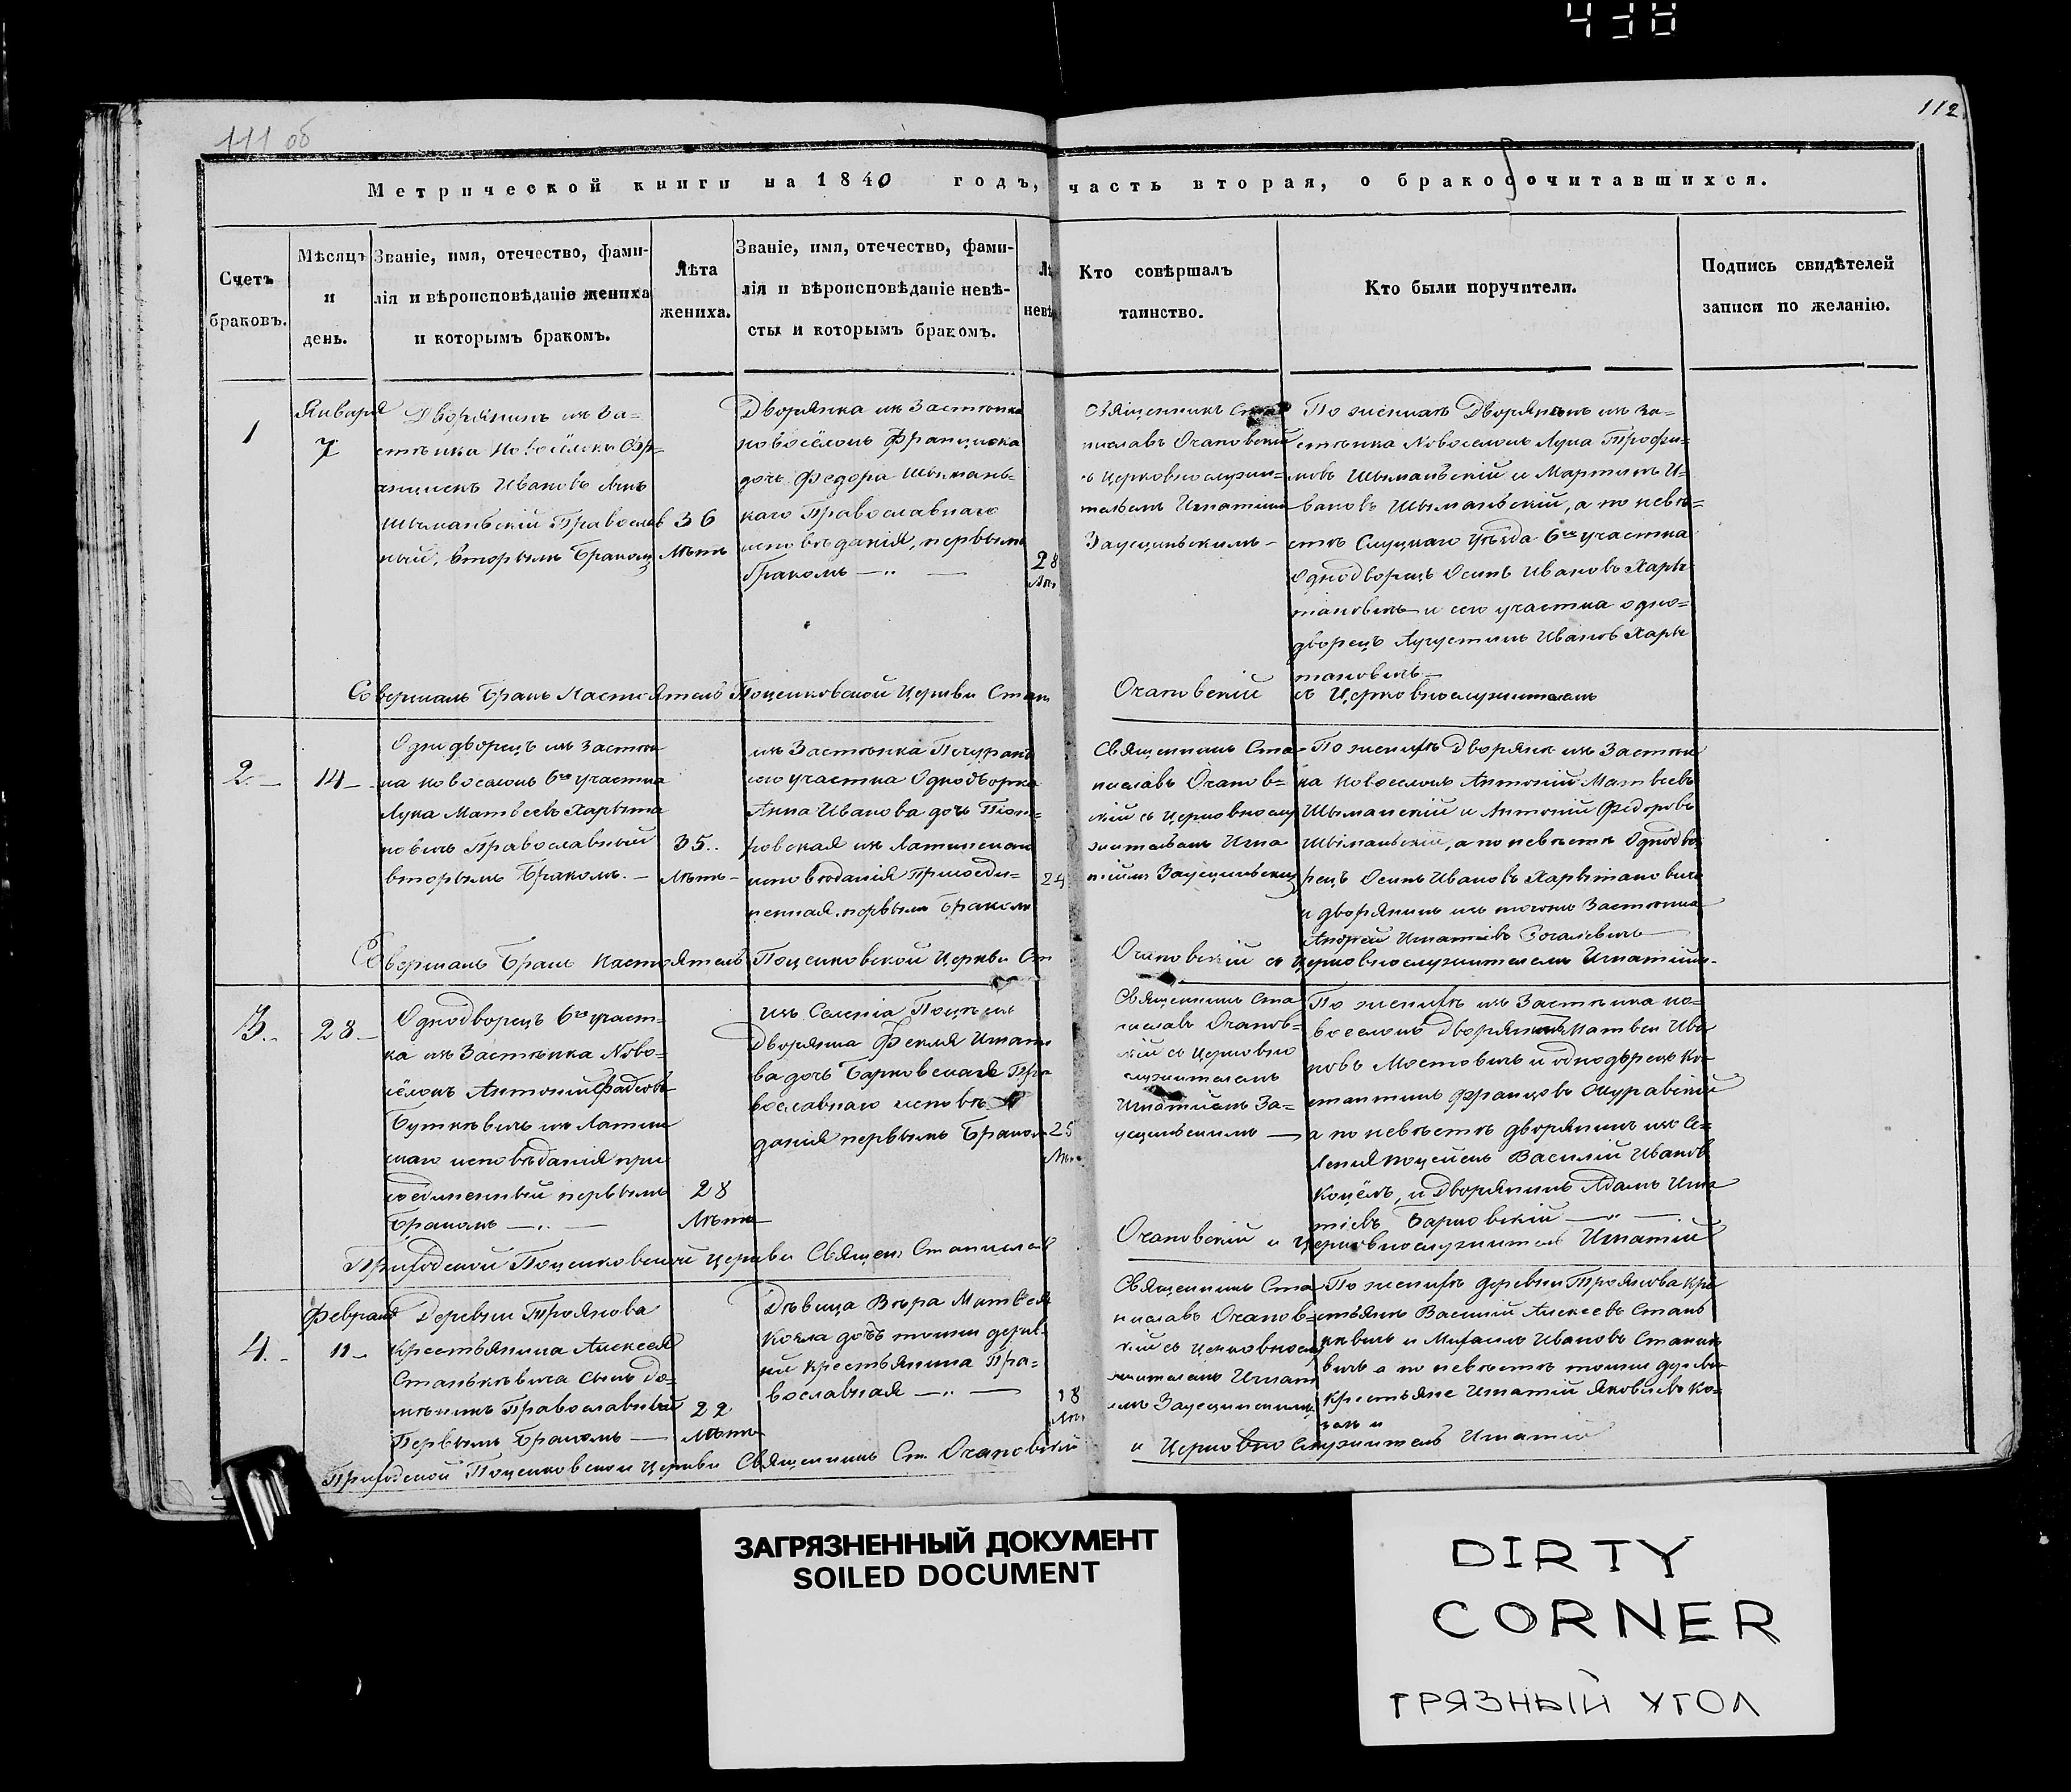 438
111 об
112
Метрической книги на 1840 годъ, часть вторая, о бракосочитавшихся.
Счетъ
браковъ.
Мѣсяцъ
и
день.
Званіе, имя, отечество, фами-
лія и вѣроисповѣданіе жениха
и которымъ бракомъ.
Лѣта
жениха.
Званіе, имя, отечество, фами-
лія и вѣроисповѣданіе невѣ-
сты и которымъ бракомъ.
Лѣ
невѣ
Кто совѣршалъ
таинство.
Кто были поручители.
Подпись свидѣтелей
записи по желанію.
1
Января
7
Дворянинъ изъ За-
стѣнка Новосёлокъ
Ивановъ сынъ
Шыманьскій Православ
ный, вторымъ бракомъ
36
Лѣтъ
Дворянка изъ Застѣнка
новосёлокъ Францишка
дочь Федора Шымань-
каго Православнаго
исповѣданія, первымъ
бракомъ — „ —
28
Лѣт
Священникъ Ста
ниславъ Очановскій
съ Церковнослужи-
телемъ Игнатіемъ
Заусциньскимъ —
По женихѣ Дворянинъ изъ За-
стѣнка Новоселокъ Лука Трофи-
мовъ Шыманьскій и Мартинъ И-
вановъ Шыманьскій, а по невѣ-
стѣ Слуцкаго уѣзда 6го участка
Однодворецъ Осипъ Ивановъ Хары-
тановичь и сего участка одно-
дворецъ Аугустинъ Ивановъ Хары-
тановичь —
Совершалъ Бракъ Настоятель Поцейковской Церкви Стан
Очановскій съ Церковнослужителемъ
2. —
14 —
Однодворецъ изъ Застѣн
ка новоселокъ 6го участка
Лука Матвеевъ Харыта
новичь Православный
вторымъ Бракомъ. —
35..
Лѣтъ —
изъ Застѣнка Печуранъ
сего участка Однодворка
Анна Иванова дочь Піот-
ровская изъ Латинскаго
исповѣданія Присоеди-
ненная, первымъ Бракомъ
24
Священникъ Ста-
ниславъ Очанов-
скій съ Церковнослу
жителемъ Игна
тіемъ Заусциньскимъ
По женихѣ Дворяне изъ Застѣн
ка Новоселокъ Антоній Матвеевъ
Шыманскій и Антоній Федоровъ
Шыманьскій, а по невѣстѣ Однодво
рецъ Осипъ Ивановъ Харытановичь
и дворянинъ изъ тогоже Застѣнка
Андрей Игнатіевъ
Совершалъ Бракъ Настоятель Поцейковской Церкви Ст
Очановскій съ Церковнослужителемъ Игнатіем.
3. —
28 —
Однодворецъ 6го участ-
ка изъ Застѣнка Ново-
сёлокъ Антоній Фадеевъ
Буткѣвичь изъ Латин
скаго исповѣданія при
соединенный первымъ
Бракомъ — „ —
28
Лѣтъ
изъ Селенія
Дворянка Фекля Игнать
ва дочь Барковская Пра
вославнаго исповѣ
данія первымъ Браком
25
Лѣт
Священникъ Ста
ниславъ Очанов-
скій съ Церковно
служителемъ
Игнатіемъ За-
усциньскимъ —
По женихѣ изъ Застѣнка но-
воселокъ Дворянинъ Матвей Ива
новъ Мостовичь и однодворецъ Кон
стантинъ Францовъ
а по невѣстѣ дворянинъ изъ Се-
ленія Василій Ивановъ
и Дворянинъ Адамъ Игна
тіевъ Барковскій — „ —
Приходской Поцейковской Церкви Священ: Станиславъ
Очановскій и Церковнослужитель Игнатій
4. —
Февраля
11 —
Деревни Троянова
Крестьянина Алексея
Станькѣвича сынъ До-
Православный
Первымъ Бракомъ —
22
Лѣтъ
Дѣвица Вѣра Матвея
Козла дочь тойже дерев-
ни крестьянина Пра-
вославная — „ —
18
Лѣт
Священникъ Ста
ниславъ Очанов-
скій съ Церковнослу
жителемъ Игнат
іемъ Заусциньскимъ
По женихѣ деревни Троянова Кре
стьяне Василій Алексеевъ Стань
кѣвичь и Михаилъ Ивановъ Станкѣ
вичь а по невѣстѣ тойже деревни
крестьяне Игнатій Яковлевъ Ко-
Приходской Поцейковской Церкви Священникъ Ст. Очановскій
и Церковно Служитель Игнатій
ЗАГРЯЗНЕННЫЙ ДОКУМЕНТ
SOILED DOCUMENT
DIRTY
CORNER
ГРЯЗНЫЙ УГОЛ